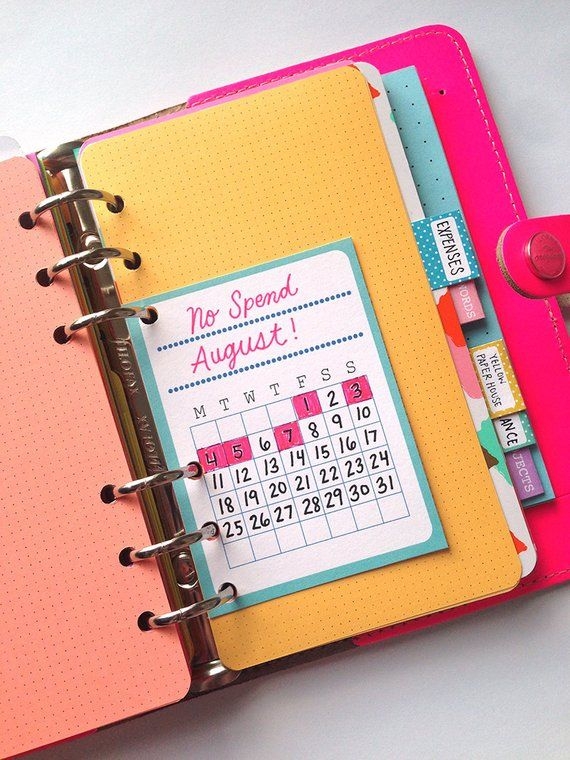 No Spend
August!
M T W T F S S
1 2 3
4 5 6 7 8 9 10
11 12 13 14 15 16 17
18 19 20 21 22 23 24
25 26 27 28 29 30 31
EXPENSES
YELLOW
PAPER HOUSE